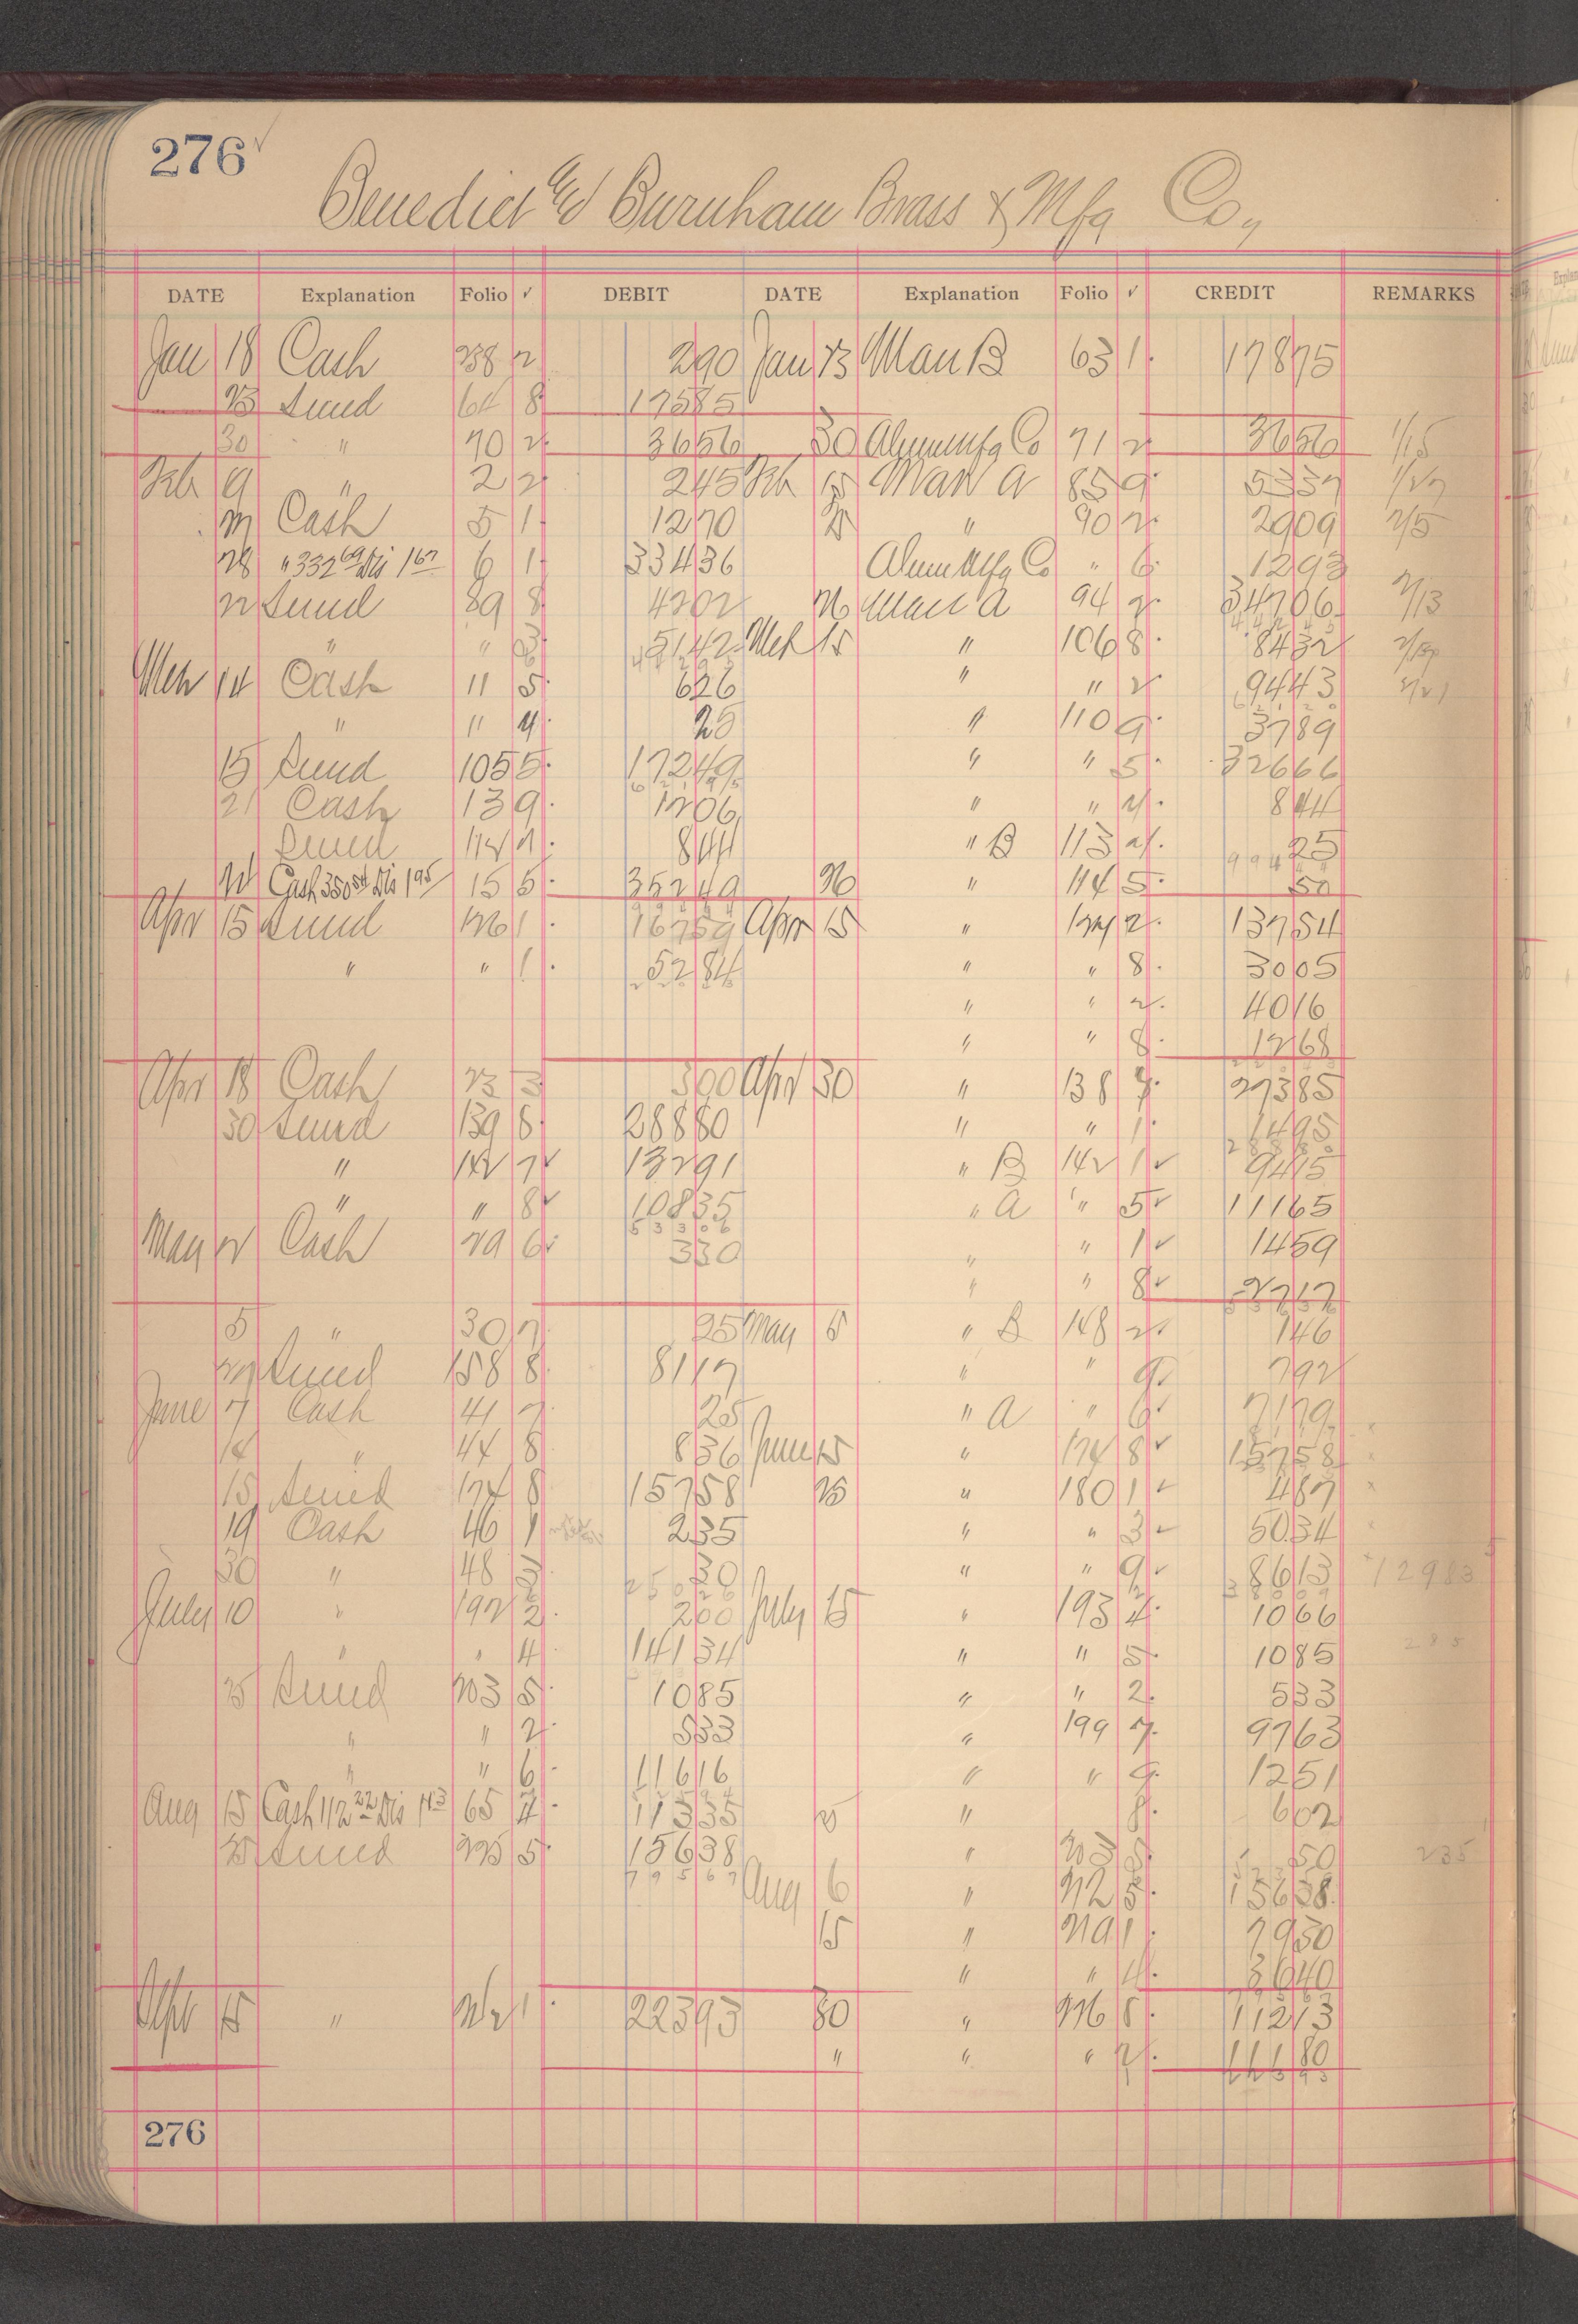 276
Benedict and Burnham Brass & Mfg Co,
DATE Explanation Folio ✓ DEBIT DATE Explanation Folio ✓ CREDIT REMARKS
Jan 18 Cash 238 2 2 90 Jan 13 Man B 63 1 178 75
23 Sund 64 8 175 85
30 " 70 2 36 56 30 Alumn Mfg Co 71 2 36 56 1/15
Feb 9 " 2 2 2 45 Feb 15 Man A 85 9 53 37 1/27
Cash 5 1 12 70 " 90 2 29 09 2/5
28 " 332 69 Dis 1 67 6 1 334 36 Alum Mfg Co " 6 12 93
Sund 89 8 42 02 26 Man A 94 2 347 06 2/13
" " 3 51 42 Mch 15 " 106 8 84 32
Mch 14 Cash 11 5 6 26 " " 2 94 43 2/21
" 11 4 25 " 110 9 37 89
15 Sund 105 5 172 49 " " 5 326 66
21 Cash 13 9 12 06 " " 4 8 44
Sund 112 4 8 44 " B 113 4 25
Cash 350 54 Dis 1 95 15 5 352 49 26 " 114 5 50
Apr 15 Sund 126 1 167 59 Apr 15 " 124 2 137 54
" " 1 52 84 " " 8 30 05
" " 2 40 16
" " 8 12 68
Apr 18 Cash 23 3 3 00 Apr 30 " 138 4 273 85
30 Sund 139 8 288 80 " " 1 14 95
" 142 7 ✓ 132 91 " B 142 1 ✓ 94 15
" " 8 ✓ 108 35 " A " 5 ✓ 111 65
May 2 Cash 29 6 3 30 " " 1 ✓ 14 59
" " 8 ✓ 27 17
5 " 30 7 25 May 5 " B 148 2 1 46
Sund 158 8 81 17 " " 9 7 92
June 7 Cash 41 7 25 " A " 6 71 79
14 " 44 8 8 36 June 15 " 174 8 ✓ 157 58
15 Sund 174 8 157 58 25 " 180 1 ✓ 4 87
19 Cash 46 1 2 35 " " 3 ✓ 50 34
30 " 48 3 30 " " 9 ✓ 86 13 129 83
July 10 " 192 2 2 00 July 15 " 193 4 10 66
" " 4 141 34 " " 5 10 85 2 85
25 Sund 203 5 10 85 " " 2 5 33
" " 2 5 33 " 199 7 97 63
" " 6 116 16 " " 9 12 51
Aug 15 Cash 112 22 Dis 1 13 65 4 113 35 25 " 8 6 02
25 Sund 225 5 156 38 " 203 50 2 35
Aug 6 " 212 5 156 38
15 " 219 1 79 30
" " 4 36 40
15 " 1 223 93 30 " 226 8 112 13
" " " 2 111 80
276